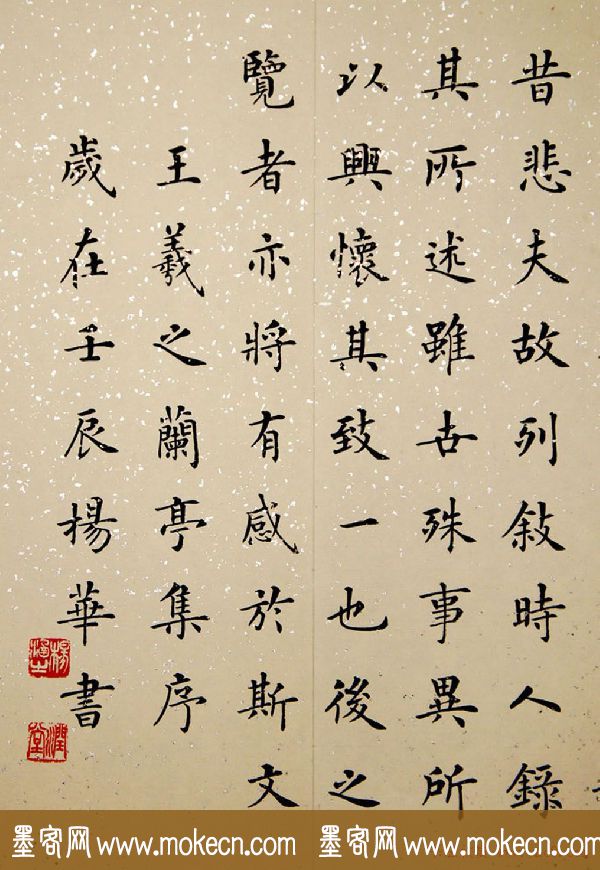 昔悲夫故列敘時人錄
其所述雖世殊事異所
以興懷其致一也後之
覽者亦將有感於斯文
王羲之蘭亭集序
歲在壬辰楊華書
墨客网 www.mokecn.com 墨客网 www.mokecn.com